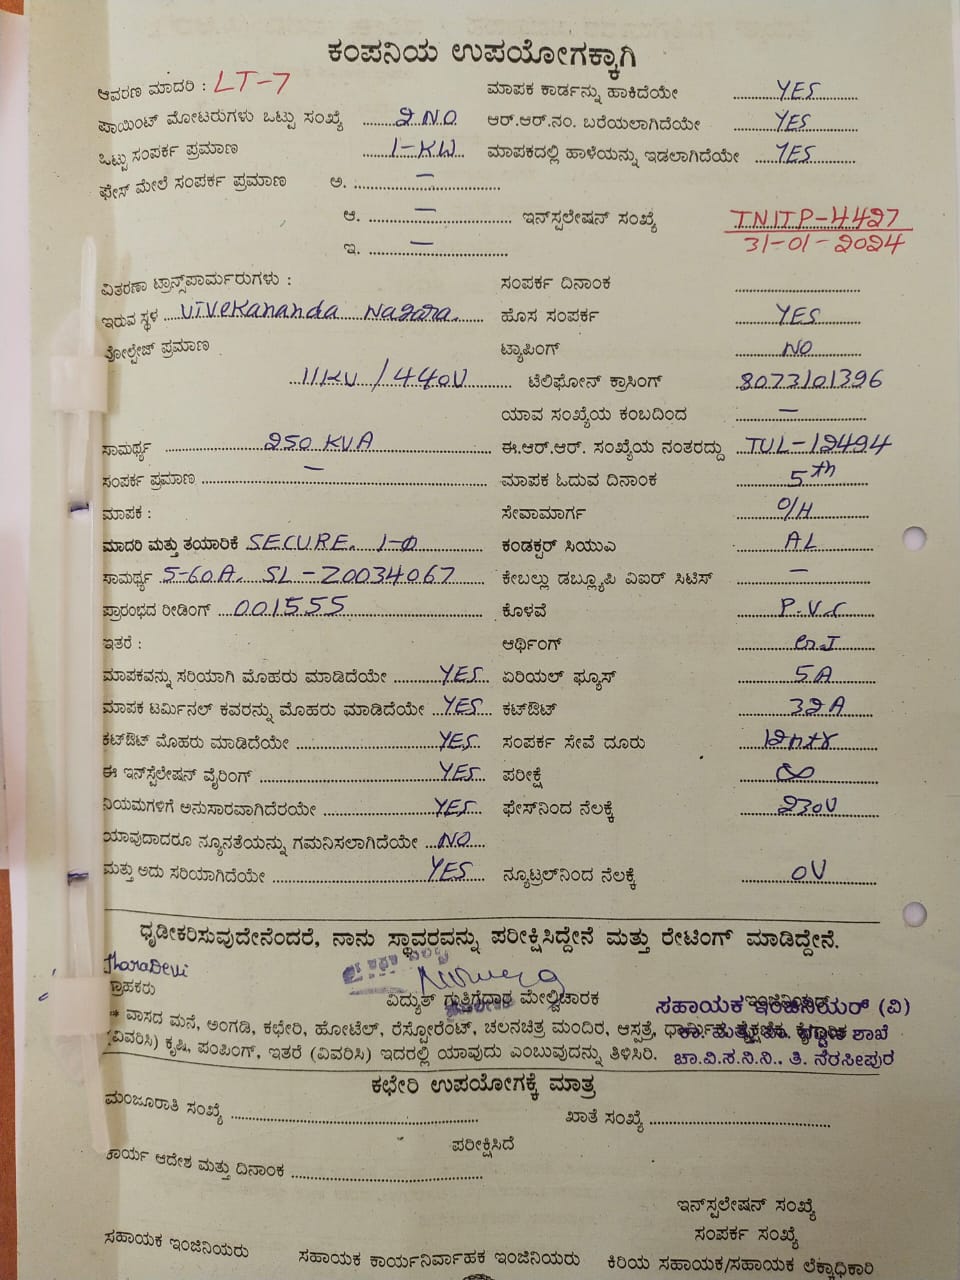 ಕಂಪನಿಯ ಉಪಯೋಗಕ್ಕಾಗಿ
ಆವರಣ ಮಾದರಿ : LT-7 ಮಾಪಕ ಕಾರ್ಡನ್ನು ಹಾಕಿದೆಯೇ YES
ಪಾಯಿಂಟ್ ಮೋಟರುಗಳು ಒಟ್ಟು ಸಂಖ್ಯೆ 2 NO ಆರ್.ಆರ್.ನಂ. ಬರೆಯಲಾಗಿದೆಯೇ YES
ಒಟ್ಟು ಸಂಪರ್ಕ ಪ್ರಮಾಣ 1-KW ಮಾಪಕದಲ್ಲಿ ಹಾಳೆಯನ್ನು ಇಡಲಾಗಿದೆಯೇ YES
ಫೇಸ್ ಮೇಲೆ ಸಂಪರ್ಕ ಪ್ರಮಾಣ ಅ. —
ಆ. — ಇನ್‌ಸ್ಟಲೇಷನ್ ಸಂಖ್ಯೆ TNITP-4427
ಇ. — 31-01-2024
ವಿತರಣಾ ಟ್ರಾನ್ಸ್‌ಪಾರ್ಮರುಗಳು : ಸಂಪರ್ಕ ದಿನಾಂಕ
ಇರುವ ಸ್ಥಳ Vivekananda Nagara. ಹೊಸ ಸಂಪರ್ಕ YES
ವೋಲ್ಟೇಜ್ ಪ್ರಮಾಣ ಟ್ಯಾಪಿಂಗ್ NO
11KV/440V ಟೆಲಿಫೋನ್ ಕ್ರಾಸಿಂಗ್ 8073101396
ಯಾವ ಸಂಖ್ಯೆಯ ಕಂಬದಿಂದ —
ಸಾಮರ್ಥ್ಯ 250 KVA ಈ.ಆರ್.ಆರ್. ಸಂಖ್ಯೆಯ ನಂತರದ್ದು TUL-12494
ಸಂಪರ್ಕ ಪ್ರಮಾಣ — ಮಾಪಕ ಓದುವ ದಿನಾಂಕ 5th
ಮಾಪಕ : ಸೇವಾಮಾರ್ಗ O/H
ಮಾದರಿ ಮತ್ತು ತಯಾರಿಕೆ SECURE. 1-Φ ಕಂಡಕ್ಟರ್ ಸಿಯುಎ AL
ಸಾಮರ್ಥ್ಯ 5-60A. SL-Z0034067 ಕೇಬಲ್ಲು ಡಬ್ಲ್ಯೂಪಿ ವಿಐಆರ್ ಸಿಟಿಸ್ —
ಪ್ರಾರಂಭದ ರೀಡಿಂಗ್ 001555 ಕೊಳವೆ P.V.C
ಇತರೆ : ಆರ್ಥಿಂಗ್ G.I
ಮಾಪಕವನ್ನು ಸರಿಯಾಗಿ ಮೊಹರು ಮಾಡಿದೆಯೇ YES ಏರಿಯಲ್ ಫ್ಯೂಸ್ 5A
ಮಾಪಕ ಟರ್ಮಿನಲ್ ಕವರನ್ನು ಮೊಹರು ಮಾಡಿದೆಯೇ YES ಕಟ್‌ಔಟ್ 32A
ಕಟ್‌ಔಟ್ ಮೊಹರು ಮಾಡಿದೆಯೇ YES ಸಂಪರ್ಕ ಸೇವೆ ದೂರು
ಈ ಇನ್‌ಸ್ಟಲೇಷನ್ ವೈರಿಂಗ್ YES ಪರೀಕ್ಷೆ ∞
ನಿಯಮಗಳಿಗೆ ಅನುಸಾರವಾಗಿದೆರಯೇ YES ಫೇಸ್‌ನಿಂದ ನೆಲಕ್ಕೆ 230V
ಯಾವುದಾದರೂ ನ್ಯೂನತೆಯನ್ನು ಗಮನಿಸಲಾಗಿದೆಯೇ NO
ಮತ್ತು ಅದು ಸರಿಯಾಗಿದೆಯೇ YES ನ್ಯೂಟ್ರಲ್‌ನಿಂದ ನೆಲಕ್ಕೆ 0V
ಧೃಡೀಕರಿಸುವುದೇನೆಂದರೆ, ನಾನು ಸ್ಥಾವರವನ್ನು ಪರೀಕ್ಷಿಸಿದ್ದೇನೆ ಮತ್ತು ರೇಟಿಂಗ್ ಮಾಡಿದ್ದೇನೆ.
ಗ್ರಾಹಕರು ವಿದ್ಯುತ್ ಗುತ್ತಿಗೆದಾರ ಮೇಲ್ವಿಚಾರಕ ಸಹಾಯಕ ಇಂಜಿನಿಯರ್ (ವಿ)
ವಾಸದ ಮನೆ, ಅಂಗಡಿ, ಕಛೇರಿ, ಹೋಟೆಲ್, ರೆಸ್ಟೋರೆಂಟ್, ಚಲನಚಿತ್ರ ಮಂದಿರ, ಆಸ್ಪತ್ರೆ, ಶಾಖೆ
(ವಿವರಿಸಿ) ಕೃಷಿ, ಪಂಪಿಂಗ್, ಇತರೆ (ವಿವರಿಸಿ) ಇದರಲ್ಲಿ ಯಾವುದು ಎಂಬುವುದನ್ನು ತಿಳಿಸಿರಿ. ಚಾ.ವಿ.ಸ.ನಿ.ನಿ., ತಿ. ನರಸೀಪುರ
ಕಛೇರಿ ಉಪಯೋಗಕ್ಕೆ ಮಾತ್ರ
ಮಂಜೂರಾತಿ ಸಂಖ್ಯೆ ಖಾತೆ ಸಂಖ್ಯೆ
ಪರೀಕ್ಷಿಸಿದೆ
ಕಾರ್ಯ ಆದೇಶ ಮತ್ತು ದಿನಾಂಕ
ಇನ್‌ಸ್ಟಲೇಷನ್ ಸಂಖ್ಯೆ
ಸಂಪರ್ಕ ಸಂಖ್ಯೆ
ಸಹಾಯಕ ಇಂಜಿನಿಯರು ಸಹಾಯಕ ಕಾರ್ಯನಿರ್ವಾಹಕ ಇಂಜಿನಿಯರು ಕಿರಿಯ ಸಹಾಯಕ/ಸಹಾಯಕ ಲೆಕ್ಕಾಧಿಕಾರಿ